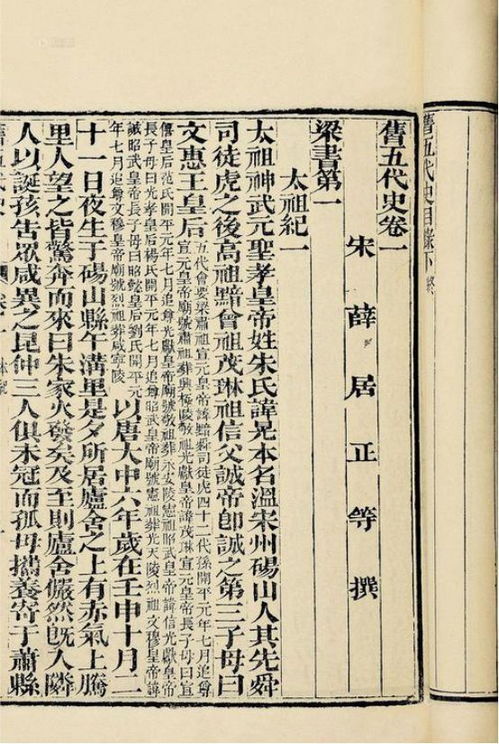 舊五代史目錄下終
舊五代史卷一
宋薛居正等撰
梁書第一
太祖紀一
太祖神武元聖孝皇帝姓朱氏諱晃本名溫宋州碭山人其先舜
司徒虎之後高祖黯曾祖茂琳祖信父誠帝即誠之第三子母曰
文惠王皇后
五代會要梁肅祖宣元皇帝諱黯舜司徒虎四十二代孫開平元年七月追尊
宣元皇帝廟號肅祖葬興極陵敬祖光獻皇帝諱茂琳宣元皇帝長子母曰宣
僖皇后范氏開平元年七月追尊光獻皇帝廟號敬祖葬永安陵憲祖昭武皇帝諱信光獻皇帝
長子母曰光孝皇后楊氏開平元年七月追尊昭武皇帝廟號憲祖葬光天陵烈祖文穆皇帝諱
誠昭武皇帝長子母曰昭懿皇后劉氏開平元
年七月追尊文穆皇帝廟號烈祖葬咸寧陵
以唐大中六年歲在壬申十月二
十一日夜生于碭山縣午溝里是夕所居廬舍之上有赤氣上騰
里人望之皆驚奔而來曰朱家火發矣及至則廬舍儼然既入鄰
人以誕孩告眾咸異之昆仲三人俱未冠而孤母攜養寄于蕭縣